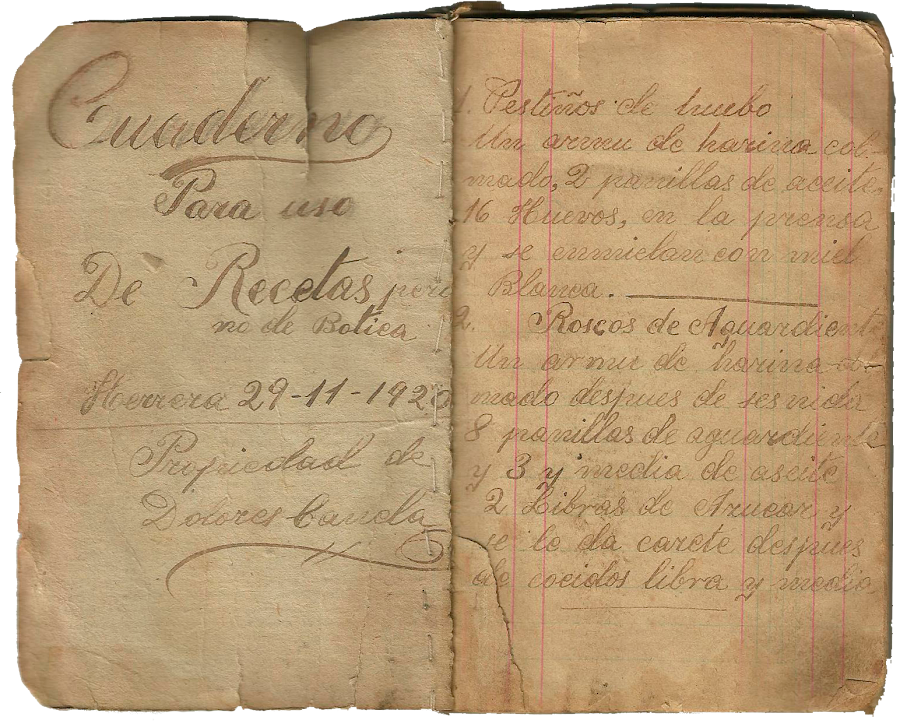 Cuaderno
Para uso
De Recetas pero
no de Botica
Herrera 29-11-1920
Propiedad de
Dolores Canela
1. Pestiños de huebo
Un armu de harina col-
mado, 2 panillas de aceite,
16 Huevos, en la prensa
y se enmielan con miel
Blanca.
2. Roscos de Aguardiente
Un armu de harina col-
mado despues de sernida
8 panillas de aguardiente
y 3 y media de aseite
2 Libras de Azucar y
se le da carete despues
de cocidos libra y media